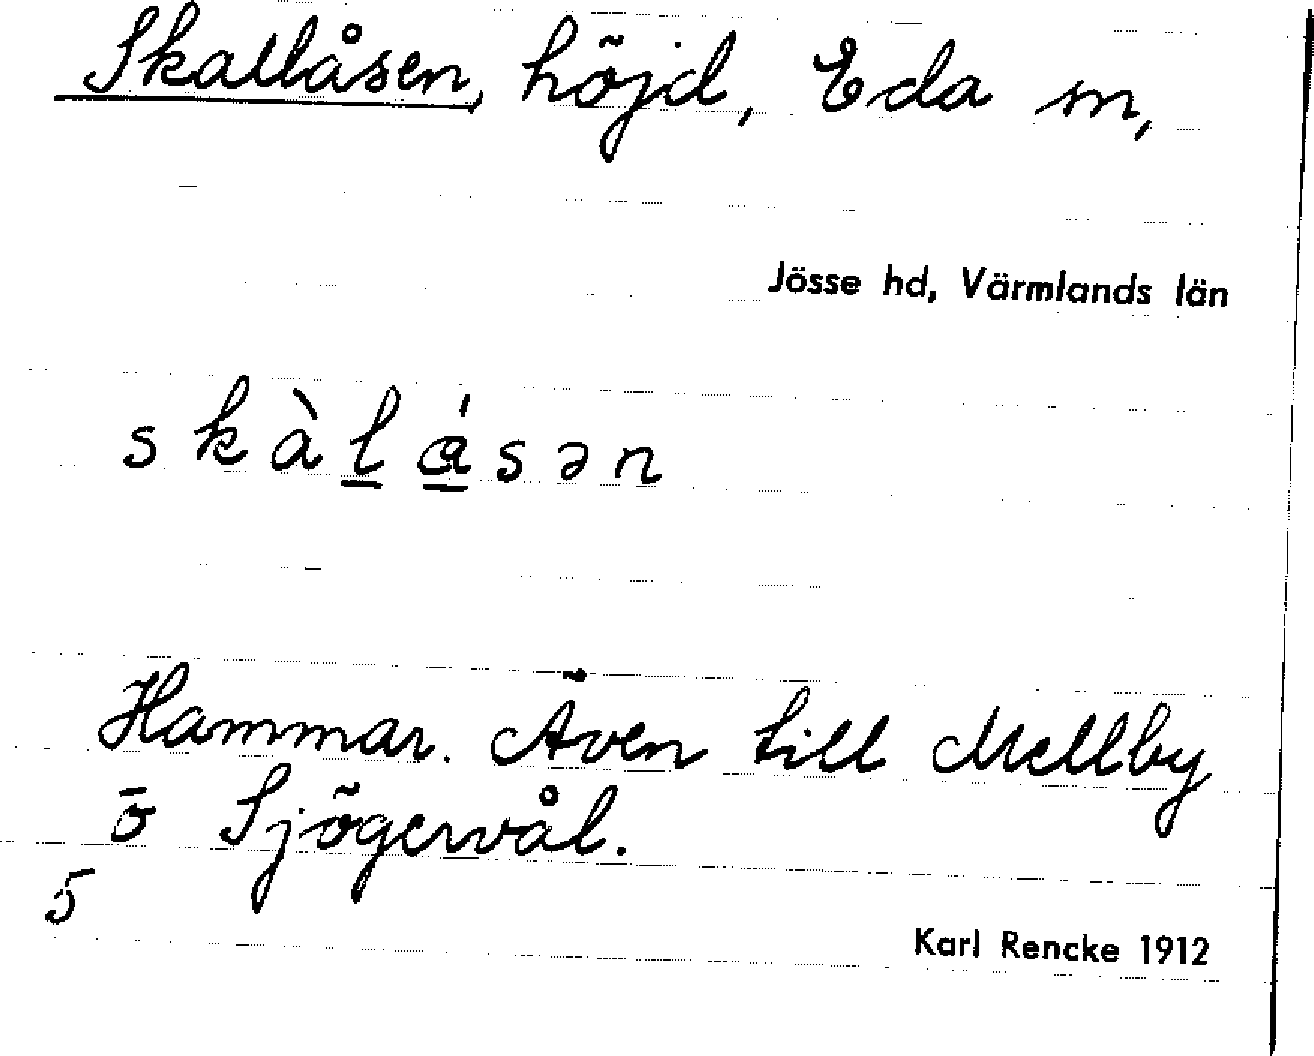 Skallåsen, höjd, Eda sn,
Jösse hd, Värmlands län
skàlåsən
Hammar. Även till Mellby
ō Sjögervål.
5
Karl Rencke 1912